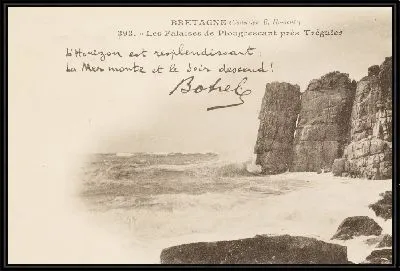 BRETAGNE
393. - Les Falaises de Plougrescant près Tréguier
L'Horizon est resplendissant,
La Mer monte et le Soir descend!
Botrel